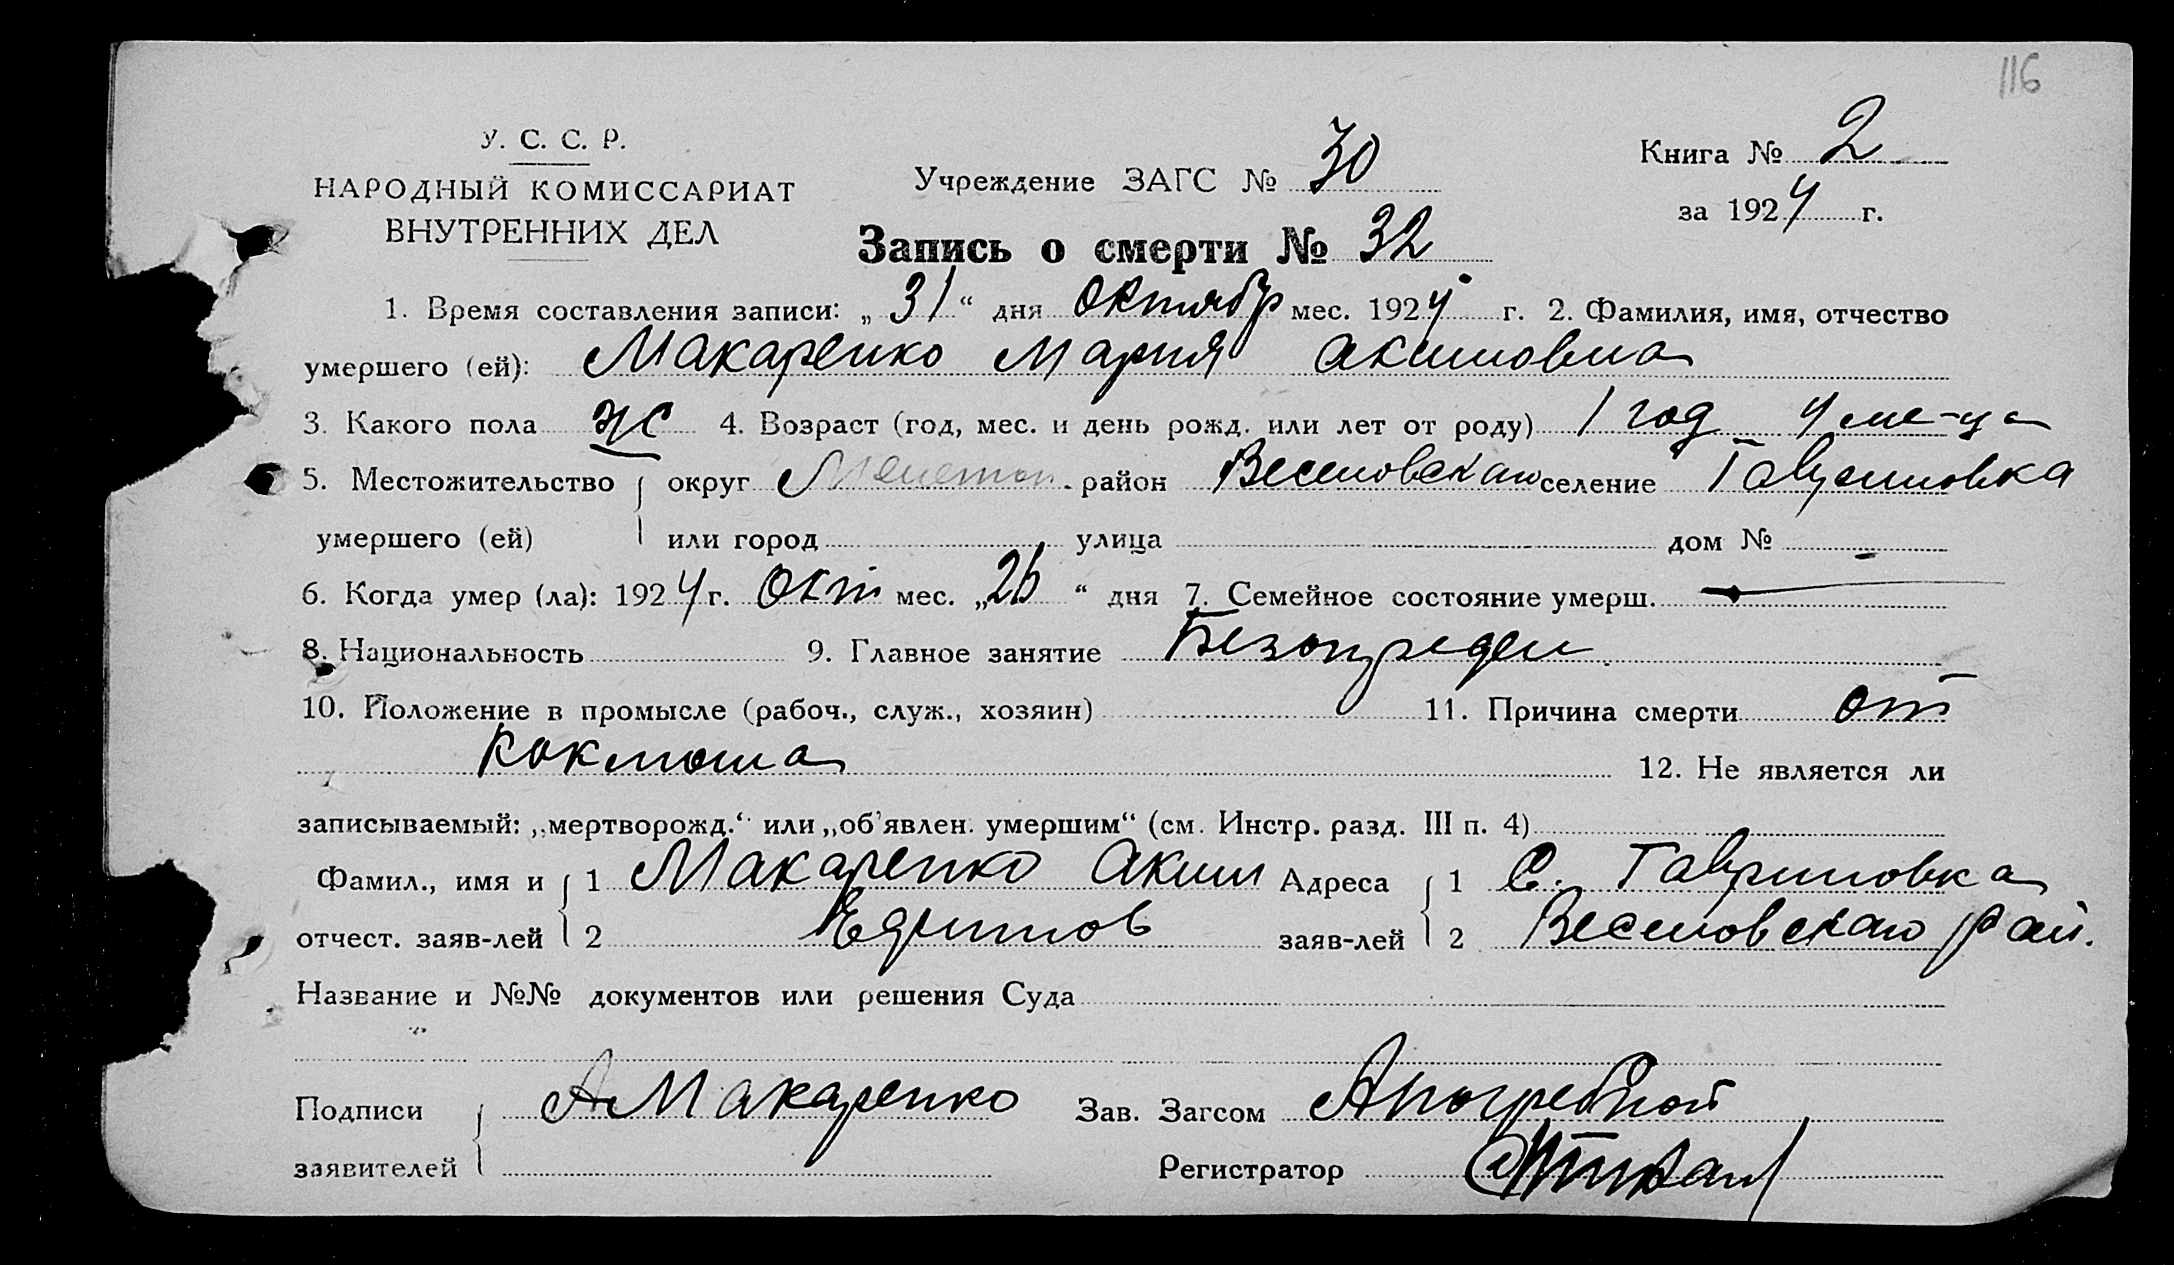 116
У. С. С. Р.
НАРОДНЫЙ КОМИССАРИАТ
ВНУТРЕННИХ ДЕЛ
Учреждение ЗАГС № 30
Книга № 2
за 1924 г.
Запись о смерти № 32
1. Время составления записи: „ 31 “ дня Октябр мес. 1924 г. 2. Фамилия, имя, отчество
умершего (ей): Макаренко Мария Акимовна
3. Какого пола ж 4. Возраст (год, мес. и день рожд. или лет от роду) 1 год 4 ме-ца
5. Местожительство округ район Веселовскаго селение Гавриловка
умершего (ей) или город улица дом № -
6. Когда умер (ла): 1924 г. Окт мес. „ 26 “ дня 7. Семейное состояние умерш.
8. Национальность 9. Главное занятие
10. Положение в промысле (рабоч., служ., хозяин) 11. Причина смерти от
Коклюша 12. Не является ли
записываемый: „мертворожд.“ или „об'явлен. умершим“ (см. Инстр. разд. III п. 4)
Фамил., имя и 1 Макаренко Аким Адреса 1 С. Гавриловка
отчест. заяв-лей 2 заяв-лей 2 Веселовскаго рай.
Название и №№ документов или решения Суда
Подписи АМакаренко Зав. Загсом АПогребной
заявителей Регистратор